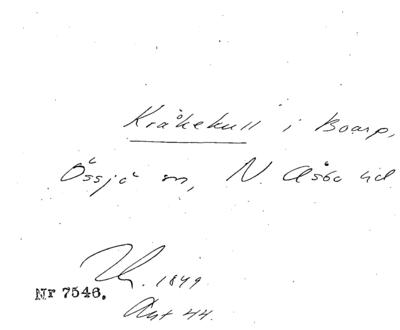 Kråkekull i Boarp,
Össjö sn, N. Åsbo hd
1849
Nr 7546.
Ant 44.